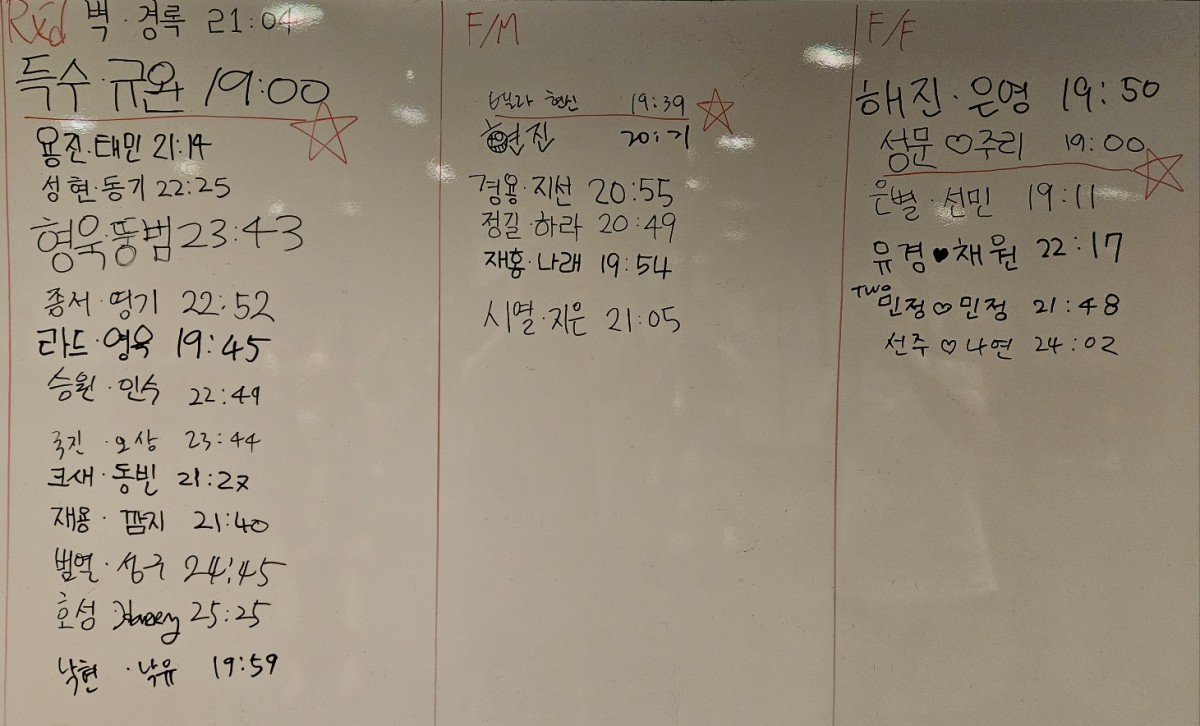 Rxd 벽 · 경록 21:04
득수 · 규완 19:00
용진 · 태민 21:14
성현 · 동기 22:25
형욱 · 뚱범 23:43
종서 · 영기 22:52
라드 · 영욱 19:45
승원 · 민수 22:49
국진 · 오상 23:44
크새 · 동빈 21:27
재용 · 깜지 21:40
범열 · 성구 24:45
호성 25:25
낙현 · 낙유 19:59
F/M
현신 19:39
현진 20:21
경용 · 지선 20:55
정길 · 하라 20:49
재홍 · 나래 19:54
시열 · 지은 21:05
F/F
해진 · 은영 19:50
성문 ♡ 주리 19:00
은별 · 선민 19:11
유경 ♥ 채원 22:17
TWO 민정 ♡ 민정 21:48
선주 ♡ 나연 24:02